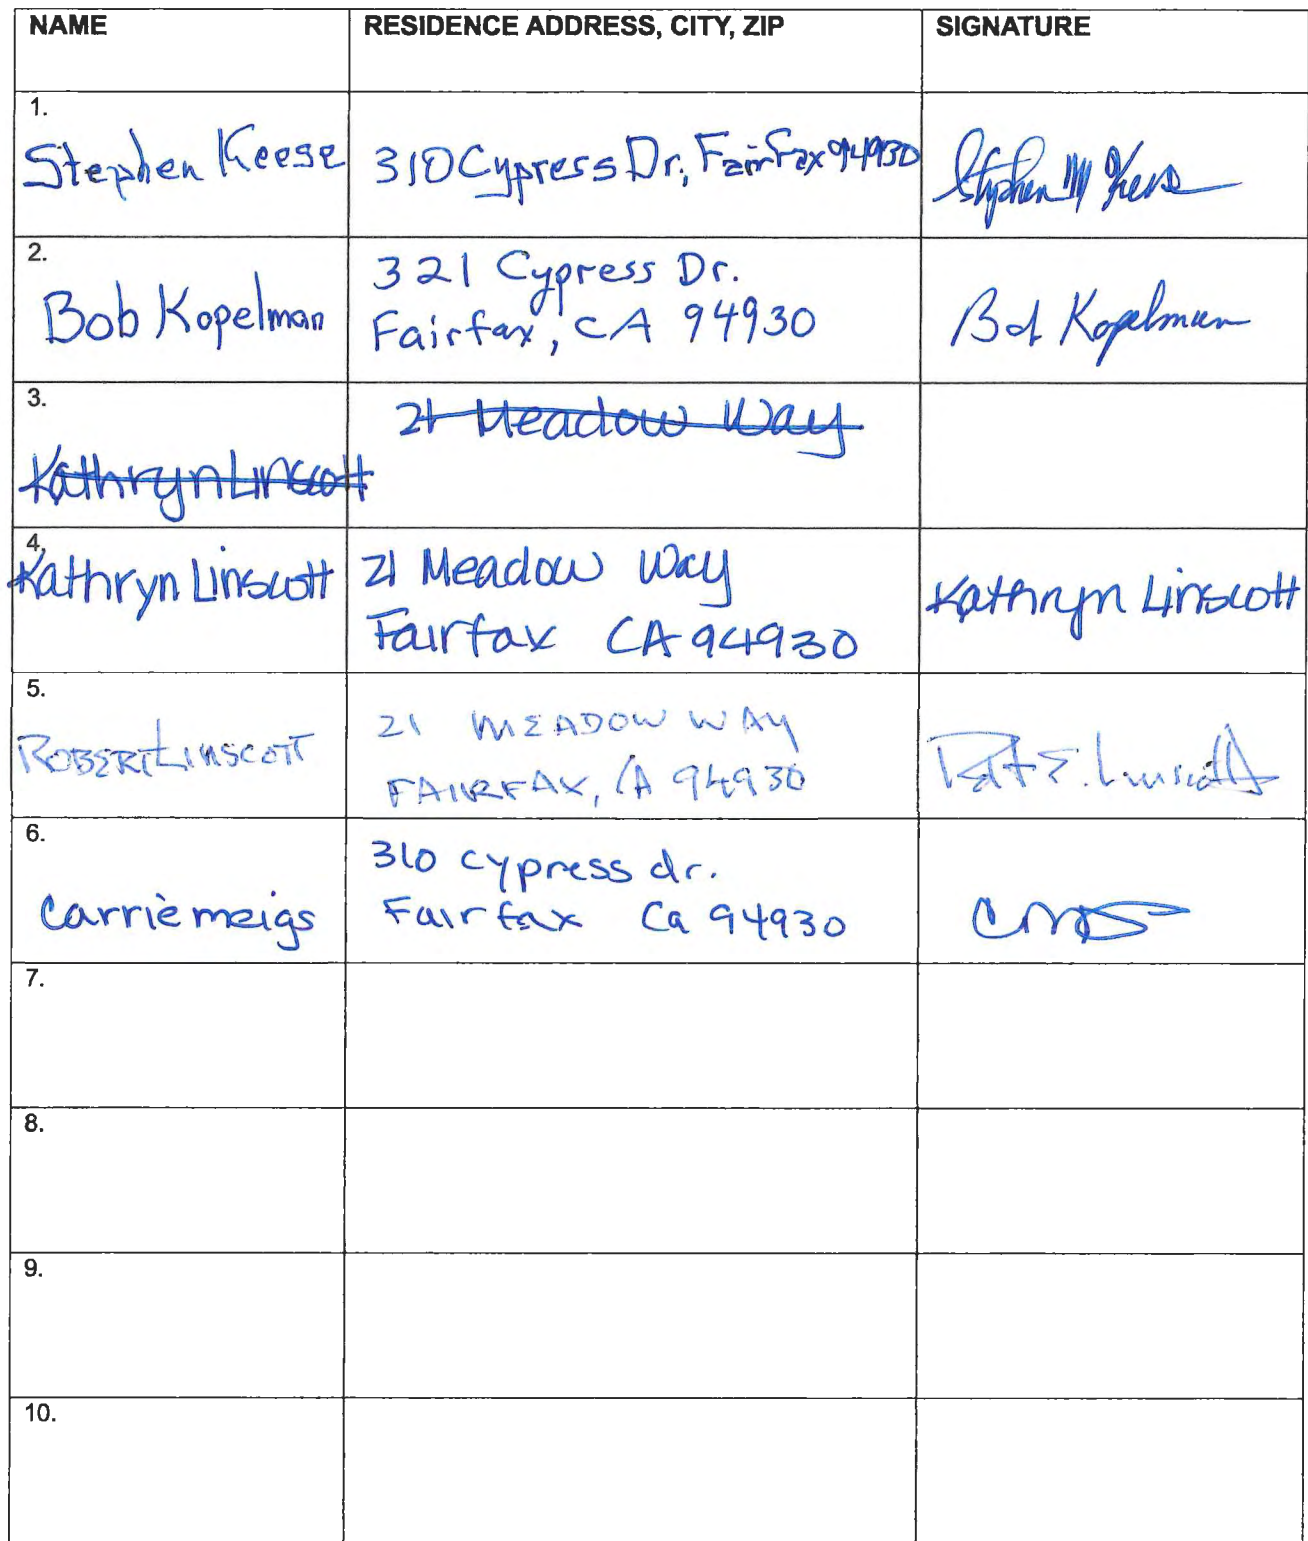 NAME RESIDENCE ADDRESS, CITY, ZIP SIGNATURE
1.
Stephen Keese 310 Cypress Dr, Fairfax 94930 Stephen M Keese
2.
Bob Kopelman 321 Cypress Dr.
Fairfax, CA 94930 Bob Kopelman
3.
21 Meadow Way
Kathryn Linscott
4.
Kathryn Linscott 21 Meadow Way
Fairfax CA 94930 Kathryn Linscott
5.
ROBERT LINSCOTT 21 MEADOW WAY
FAIRFAX, CA 94930 Robt E. Linscott
6.
Carrie meigs 310 cypress dr.
Fairfax Ca 94930
7.
8.
9.
10.